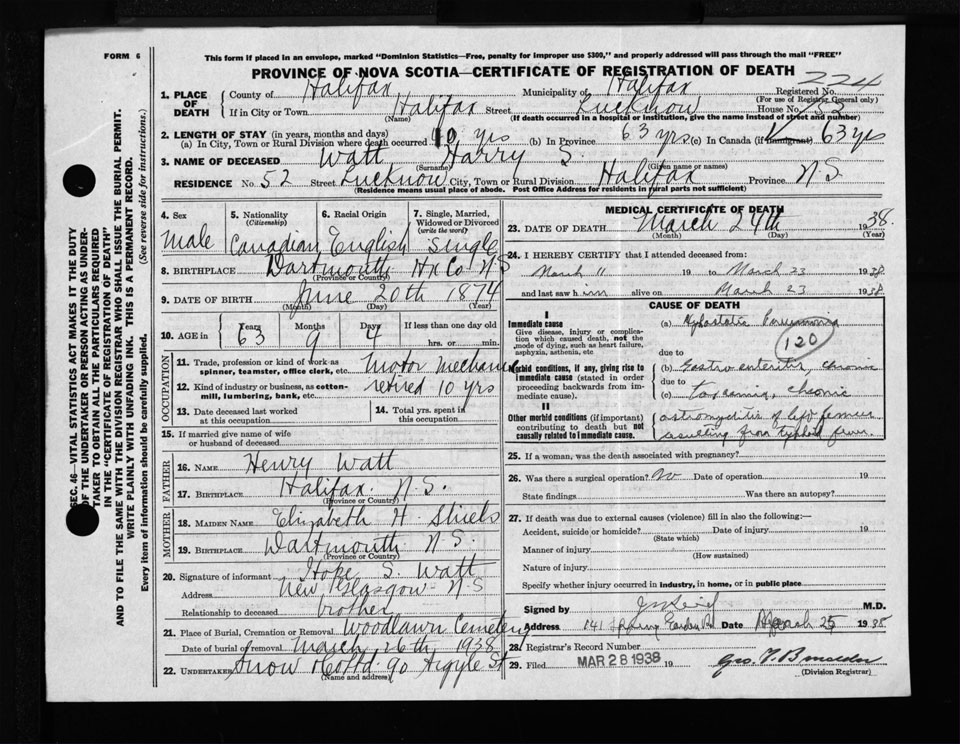 FORM 6
This form if placed in an envelope, marked "Dominion Statistics—Free, penalty for improper use $300," and properly addressed will pass through the mail "FREE"
PROVINCE OF NOVA SCOTIA—CERTIFICATE OF REGISTRATION OF DEATH
224
1. PLACE OF DEATH
County of Halifax Municipality of Halifax Registered No.
(For use of Registrar General only)
If in City or Town Halifax Street Lucknow House No. 52
(Name) (If death occurred in a hospital or institution, give the name instead of street and number)
2. LENGTH OF STAY (in years, months and days)
(a) In City, Town or Rural Division where death occurred 10 yrs (b) In Province 63 yrs (c) In Canada (if immigrant) 63 yrs
3. NAME OF DECEASED Watt Harry S.
(Surname) (Given name or names)
RESIDENCE No. 52 Street Lucknow City, Town or Rural Division Halifax Province N.S
(Residence means usual place of abode. Post Office Address for residents in rural parts not sufficient)
4. Sex
Male
5. Nationality
(Citizenship)
Canadian
6. Racial Origin
English
7. Single, Married, Widowed or Divorced
(write the word)
Single
8. BIRTHPLACE Dartmouth Hx Co N.S
(Province or Country)
9. DATE OF BIRTH June 20th 1874
(Month) (Day) (Year)
10. AGE in
Years Months Days If less than one day old
63 9 4 hrs. or min.
OCCUPATION
11. Trade, profession or kind of work as spinner, teamster, office clerk, etc. Motor mechanic
12. Kind of industry or business, as cotton-mill, lumbering, bank, etc. retired 10 yrs
13. Date deceased last worked at this occupation
14. Total yrs. spent in this occupation
15. If married give name of wife or husband of deceased
FATHER
16. NAME Henry Watt
17. BIRTHPLACE Halifax. N.S.
(Province or Country)
MOTHER
18. MAIDEN NAME Elizabeth H. Shiels
19. BIRTHPLACE Dartmouth N.S.
(Province or Country)
20. Signature of informant Hope S. Watt
Address New Glasgow N.S
Relationship to deceased brother
21. Place of Burial, Cremation or Removal Woodlawn Cemetery
Date of burial or removal March 26th 1938
22. UNDERTAKER Snow &Co Ltd. 90 Argyle St
(Name and address)
MEDICAL CERTIFICATE OF DEATH
23. DATE OF DEATH March 24th 1938.
(Month) (Day) (Year)
24. I HEREBY CERTIFY that I attended deceased from:
March 11 19 to March 23 1938
and last saw him alive on March 23 1938
CAUSE OF DEATH
I
Immediate cause
Give disease, injury or complication which caused death, not the mode of dying, such as heart failure, asphyxia, asthenia, etc
(a) Hypostatic Pneumonia
120
due to
Morbid conditions, if any, giving rise to immediate cause (stated in order proceeding backwards from immediate cause).
(b) Gastro enteritis, chronic
due to
(c) toxemia, chronic
II
Other morbid conditions (if important) contributing to death but not causally related to immediate cause.
osteomyelitis of left femur
resulting from typhoid fever.
25. If a woman, was the death associated with pregnancy?
26. Was there a surgical operation? No Date of operation 19
State findings Was there an autopsy?
27. If death was due to external causes (violence) fill in also the following:—
Accident, suicide or homicide? Date of injury 19
(State which)
Manner of injury
(How sustained)
Nature of injury
Specify whether injury occurred in industry, in home, or in public place
Signed by M.D.
Address 141 Spring Garden Rd. Date March 25 1938
28. Registrar's Record Number
29. Filed MAR 28 1938 19
(Division Registrar)
SEC. 46—VITAL STATISTICS ACT MAKES IT THE DUTY
OF THE UNDERTAKER OR PERSON ACTING AS UNDERTAKER TO OBTAIN ALL THE PARTICULARS REQUIRED
IN THE "CERTIFICATE OF REGISTRATION OF DEATH"
AND TO FILE THE SAME WITH THE DIVISION REGISTRAR WHO SHALL ISSUE THE BURIAL PERMIT.
WRITE PLAINLY WITH UNFADING INK. THIS IS A PERMANENT RECORD.
Every item of information should be carefully supplied. (See reverse side for instructions.)